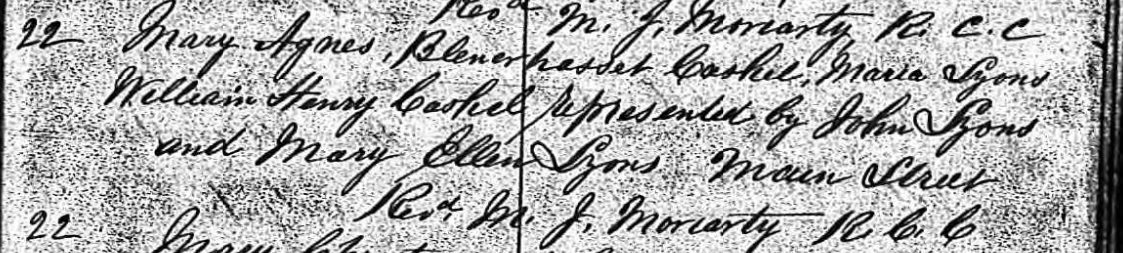 Revd M. J. Moriarty R. C. C
22 Mary Agnes, Blenerhasset Cashel, Maria Lyons
William Henry Cashel represented by John Lyons
and Mary Ellen Lyons Main Street
Revd M. J. Moriarty R. C. C
22 Mary